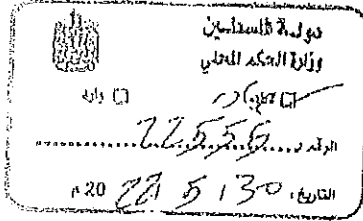 دولة فلسطين
وزارة الحكم المحلي
صادر وارد
الرقم: 22556
التاريخ: 30 / 5 / 2022 م